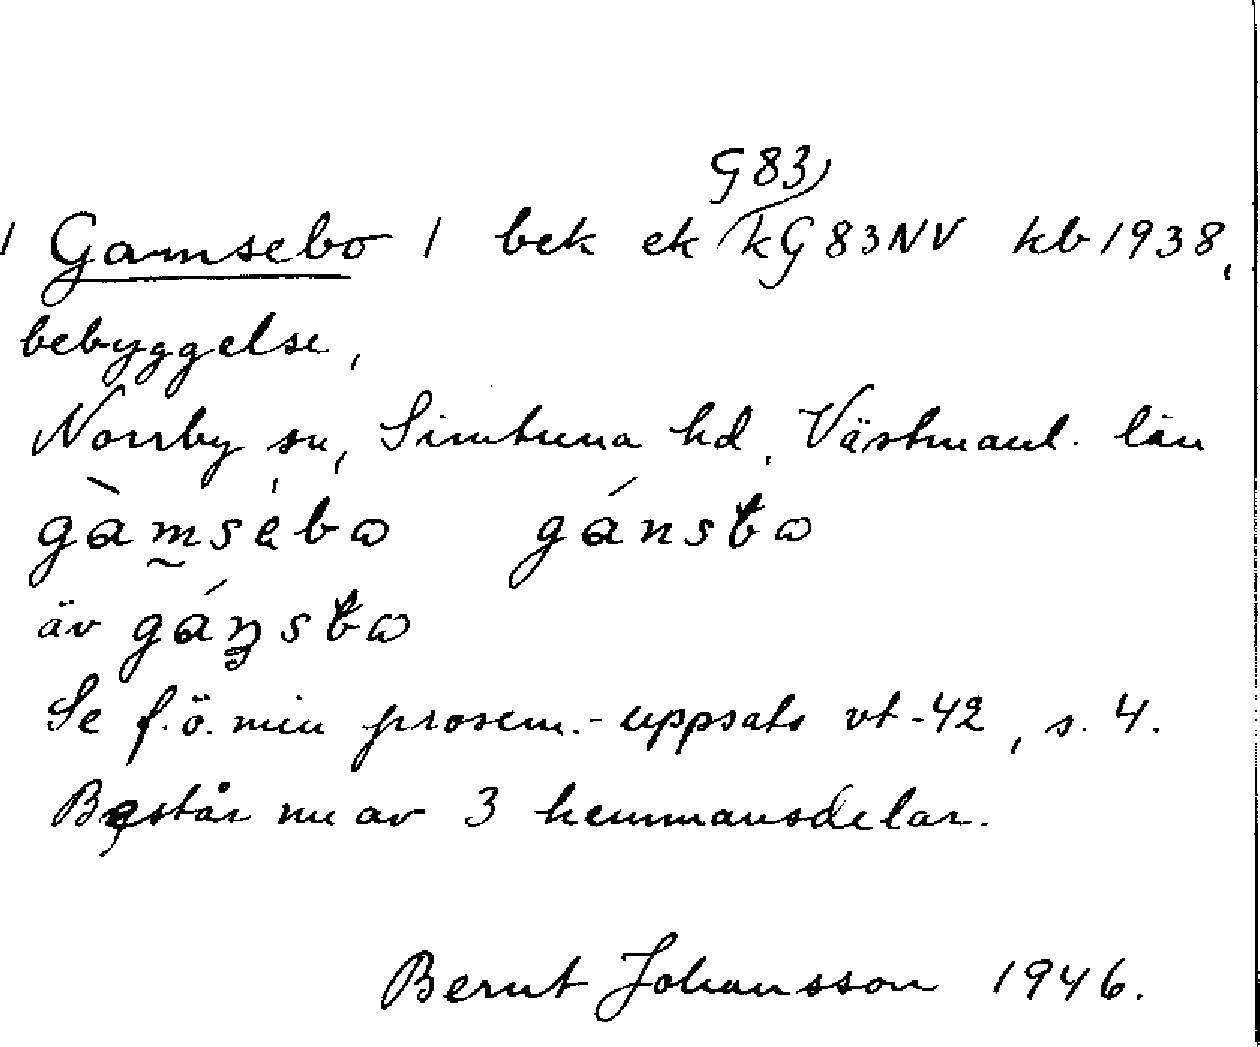 G83
1 Gamsebo 1 bek ek kG83NV kb 1938,
bebyggelse,
Norrby sn, Simtuna hd, Västmanl. län
gàmsèbo gánsbo
äv gánsbo
Se f.ö. min prosem.-uppsats vt-42, s. 4.
Består nu av 3 hemmansdelar.
Bernt Johansson 1946.